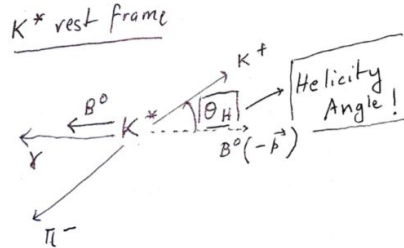 K* rest frame
K+
B⁰
K*
θH
Helicity
Angle!
γ
B⁰(-p⃗)
π⁻